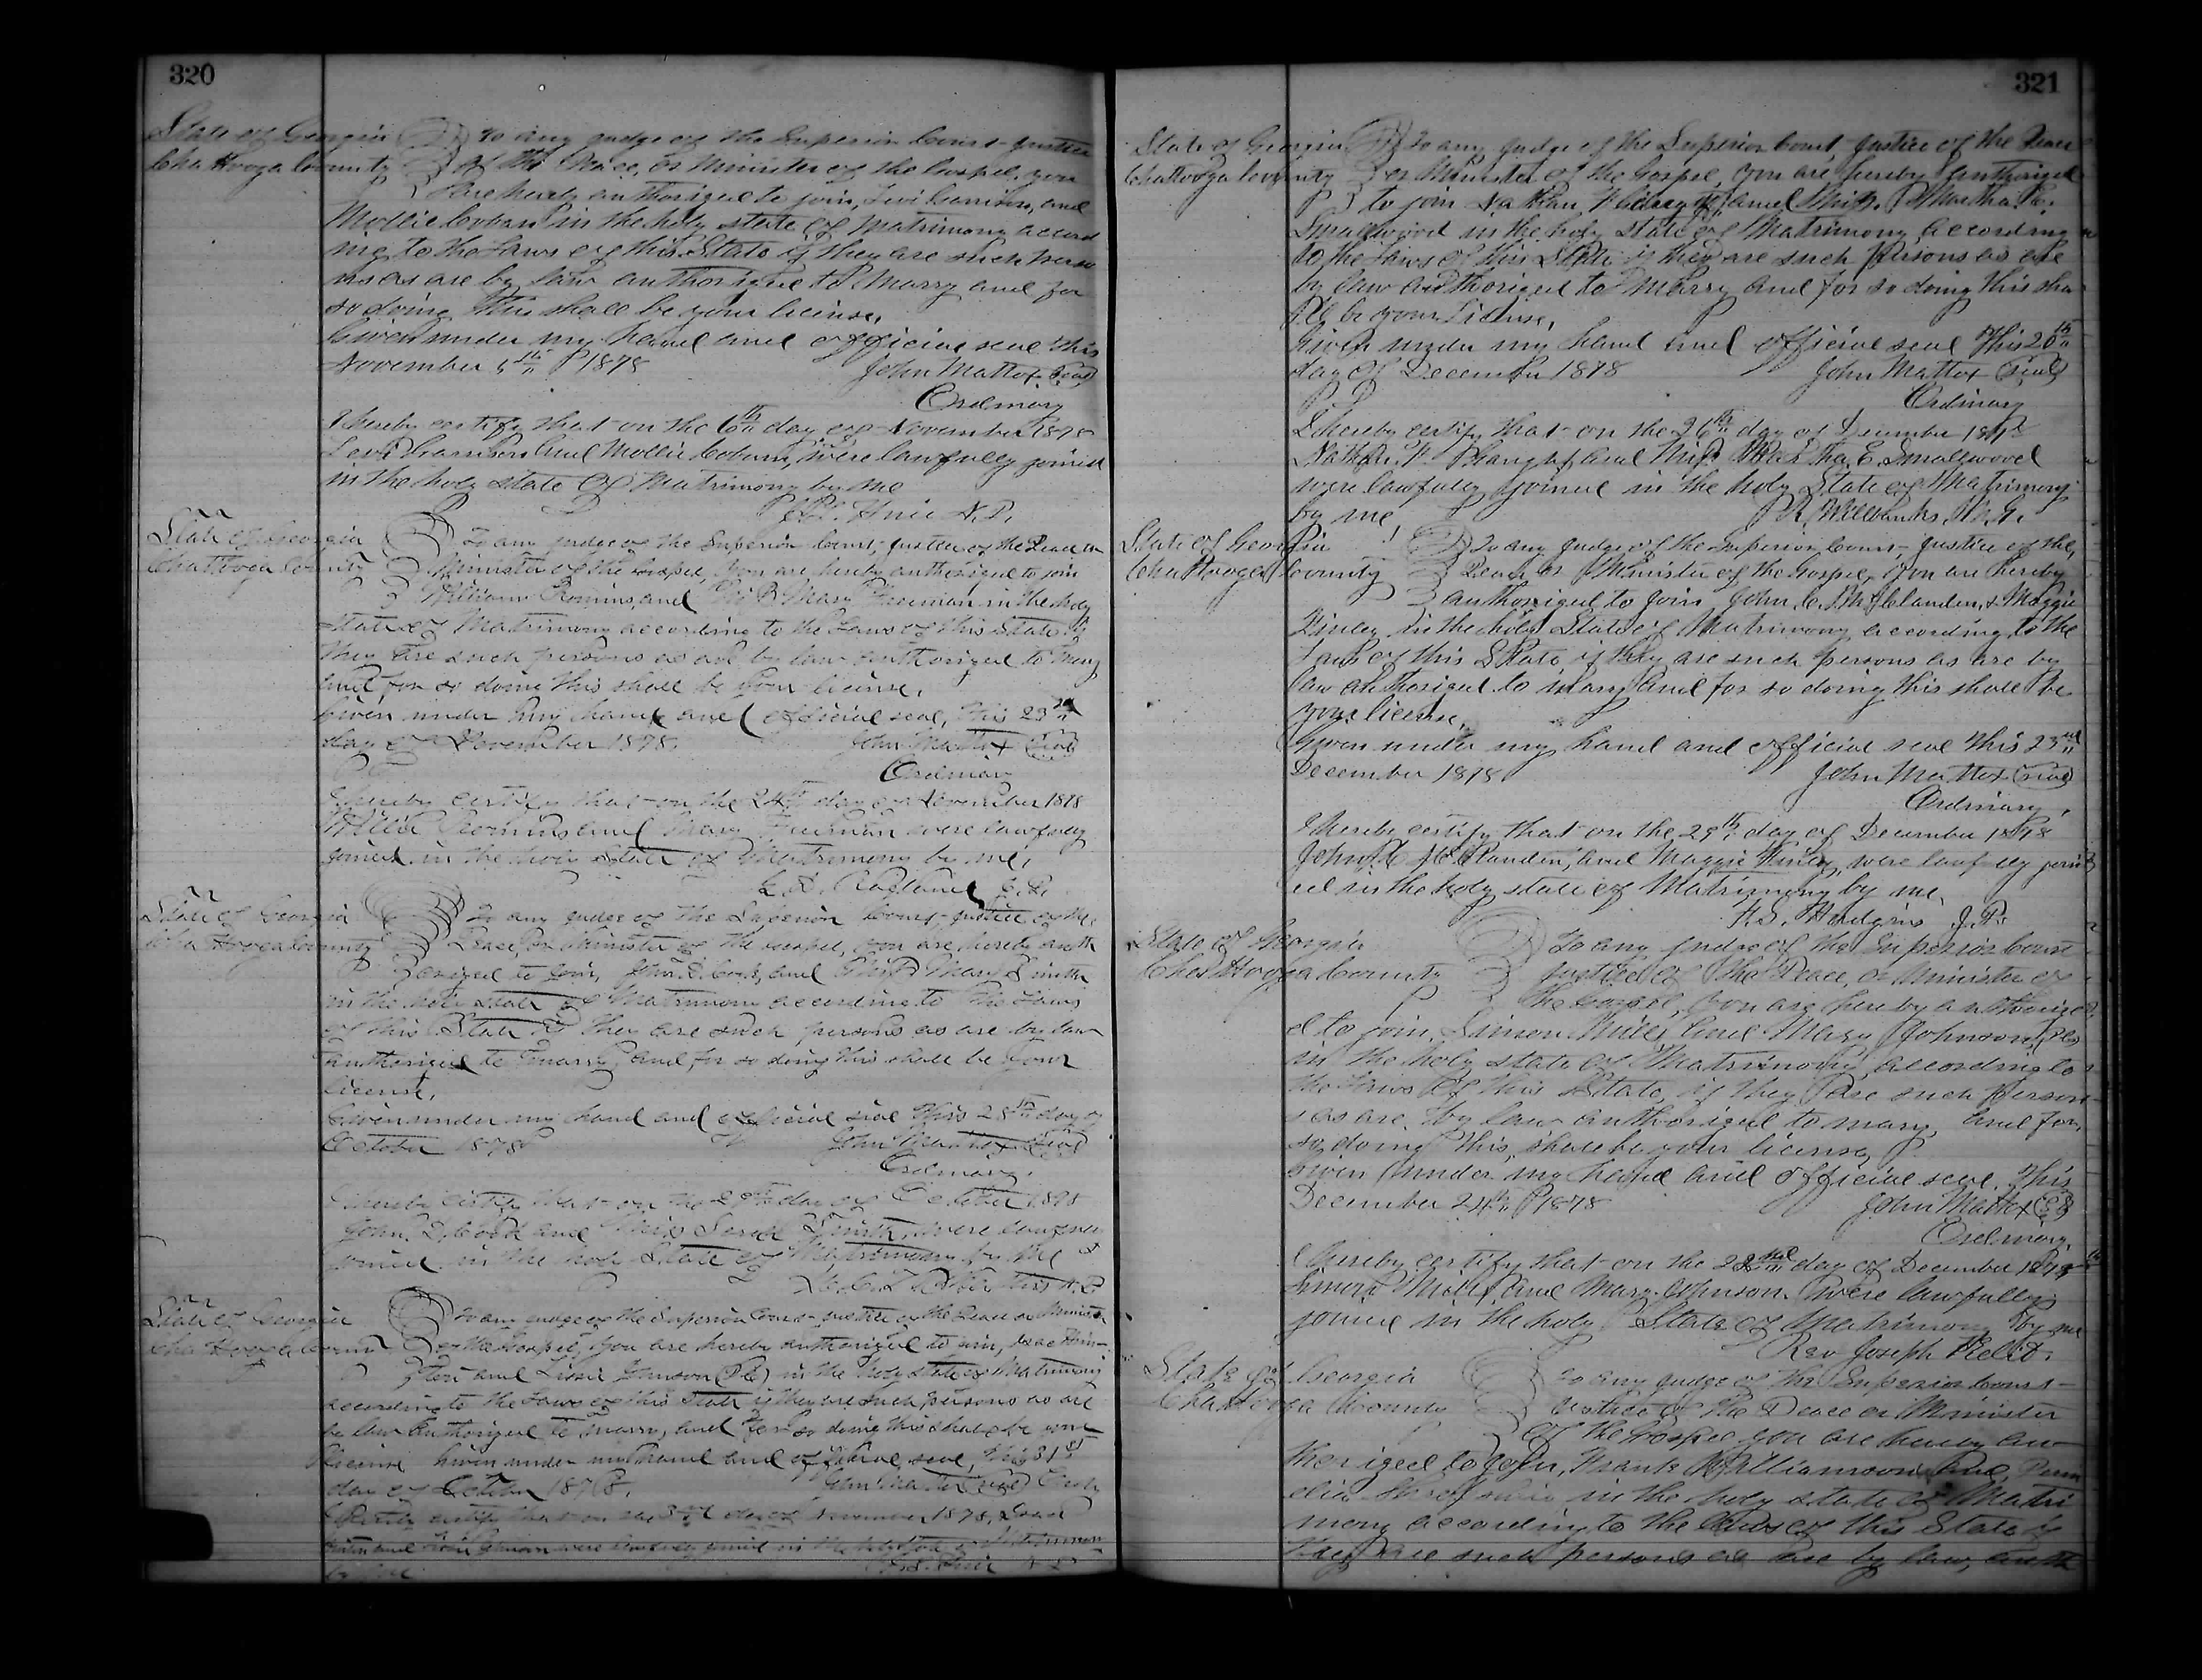 320
State of Georgia To any judge of the Superior Court Justice
Chattooga County of the Peace, or Minister of the Gospel, you
are hereby authorized to join, Levi Garrison, and
Mollie Coburn in the holy state of Matrimony accord
ing to the Laws of this State if they are such perso
ns as are by law authorized to Marry and for
so doing this shall be your license,
Given under my hand and official seal this
November 5th 1878 John Mattox (seal)
Ordinary
I hereby certify that on the 6th day of November 1878
Levi Garrison and Mollie Coburn, were lawfully joined
in the holy state of Matrimony by me
N.P.
State of Georgia To any judge of the Superior Court, Justice of the Peace or
Chattooga County Minister of the Gospel, you are hereby authorized to join
William and Mary Freeman in the holy
state of Matrimony according to the Laws of this State if
they are such persons as are by law authorized to Marry
and for so doing this shall be your license,
Given under my hand and official seal, this 23rd
day of November 1878. John Mattox (seal)
Ordinary
I hereby certify that on the 24th day of November 1878
and Mary Freeman were lawfully
joined in the holy State of Matrimony by me,
State of Georgia To any judge of the Superior Court justice of the
Chattooga County Peace, or Minister of the Gospel, you are hereby auth
orized to join, Cook, and Miss Smith
in the holy State of Matrimony according to the Laws
of this State if they are such persons as are by law
authorized to marry, and for so doing this shall be your
license,
Given under my hand and official seal this 28th day of
October 1878 John Mattox (seal)
Ordinary.
I hereby certify that on the 29th day of October 1878
John Cook and Miss Smith, were lawfully
joined in the holy State of Matrimony by me
State of Georgia To any judge of the Superior Court justice of the Peace or Minister
Chattooga County of the Gospel, you are hereby authorized to join,
and Johnson in the holy state of Matrimony
according to the Laws of this State if they are such persons as are
by law authorized to marry, and for so doing this shall be your
license Given under my hand and official seal, this 31st
day of October 1878. John Mattox (seal)
I hereby certify that on the day of November 1878,
and Johnson were lawfully joined in the holy State of Matrimony
by me
321
State of Georgia To any judge of the Superior Court, Justice of the Peace
Chattooga County or Minister of the Gospel, you are hereby authorized
to join Nathan and Miss Martha E.
Smallwood in the holy State of Matrimony according
to the Laws of this State if they are such persons as are
by law authorized to Marry and for so doing this sha
ll be your License,
Given under my hand and official seal this
day of December 1878 John Mattox (seal)
Ordinary
I hereby certify that on the 26th day of December 1878
Nathan and Miss Martha E. Smallwood
were lawfully joined in the holy State of Matrimony
by me,
State of Georgia To any judge of the Superior Court, Justice of the,
Chattooga County Peace or Minister of the Gospel, you are hereby
authorized to join John & Maggie
in the holy State of Matrimony according to the
Laws of this State if they are such persons as are by
law authorized to marry and for so doing this shall be
your license,
Given under my hand and official seal this 23rd
December 1878 John Mattox (seal)
Ordinary,
I hereby certify that on the 29th day of December 1878
John and Maggie were lawfully join
ed in the holy state of Matrimony by me,
Hudgins J.P.
State of Georgia To any judge of the Superior Court
Chattooga County Justice of the Peace, or Minister of
the Gospel, you are hereby authorize
d to join, Simon Mills and Mary Johnson,
in the holy state of Matrimony according to
the Laws of this State, if they are such person
s as are by law authorized to marry, and for
so doing this shall be your license,
Given under my hand and official seal. This
December 24th 1878 John Mattox
Ordinary,
I hereby certify that on the day of December 1878
Simon Mills, and Mary Johnson were lawfully
joined in the holy State of Matrimony by me
Rev Joseph
State of Georgia To any judge of the Superior Court
Chattooga County Justice of the Peace or Minister
of the Gospel you are hereby au
thorized to join, Frank Williamson and
in the holy state of Matri
mony according to the Laws of this State if
they are such persons as are by law, auth